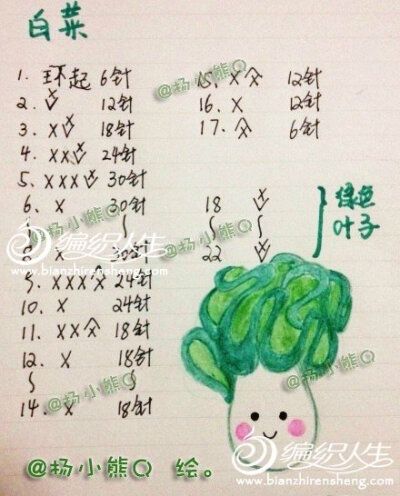 白菜
1. 环起 6针
2. V 12针
3. XV 18针
4. XXV 24针
5. XXXV 30针
6. X 30针
8. X 30针
9. XXXA 24针
10. X 24针
11. XXA 18针
12. X 18针
14. X 18针
15. XA 12针
16. X 12针
17. A 6针
18
22
绿色
叶子
@杨小熊Q
@杨小熊Q
@杨小熊Q
@杨小熊Q
编织人生
www.bianzhirensheng.com
编织人生
www.bianzhirensheng.com
@杨小熊Q 绘。